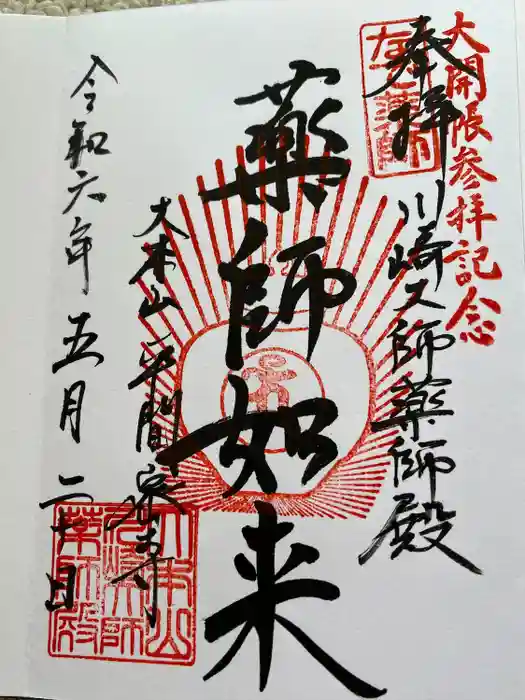 大開帳参拝記念
奉拝
川崎大師薬師殿
薬師如来
大本山平間寺
令和六年五月二十日
大本山
川崎大師
薬師殿